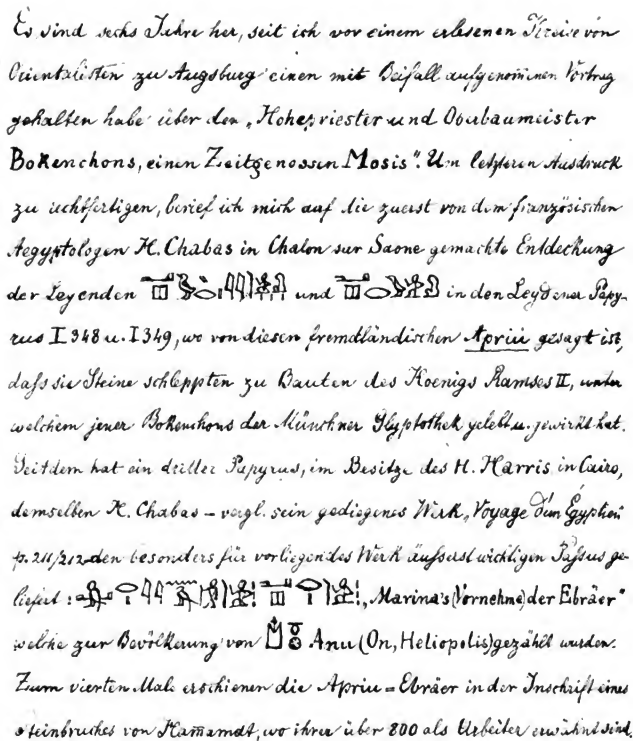 Es sind sechs Jahre her, seit ich vor einem erlesenen Kreise von
Orientalisten zu Augsburg einen mit Beifall aufgenom̅enen Vortrag
gehalten habe über den „Hohepriester und Oberbaumeister
Bokenchons, einen Zeitgenossen Mosis“. Um letzteren Ausdruck
zu rechtfertigen, berief ich mich auf die zuerst von dem französischen
Aegyptologen H. Chabas in Chalon sur Saone gemachte Entdeckung
der Legenden und in den Leydener Papy-
rus I 348 u. I 349, wo von diesen fremdländischen Apriu gesagt ist,
daſs sie Steine schleppten zu Bauten des Koenigs Ramses II, unter
welchem jener Bokenchons der Münchner Glyptothek gelebt u. gewirkt hat.
Seitdem hat ein dritter Papyrus, im Besitze des H. Harris in Cairo,
demselben H. Chabas – vergl. sein gediegenes Werk „Voyage d'un Égyptien
p. 211/212 – den besonders für vorliegendes Werk äuſserst wichtigen Paſsus ge-
liefert: „Marina's (Vornehme) der Ebräer“
welche zur Bevölkerung von Anu (On, Heliopolis) gezählt wurden.
Zum vierten Male erschienen die Apriu = Ebräer in der Inschrift eines
Steinbruches von Hamamât, wo ihrer über 800 als Arbeiter erwähnt sind.